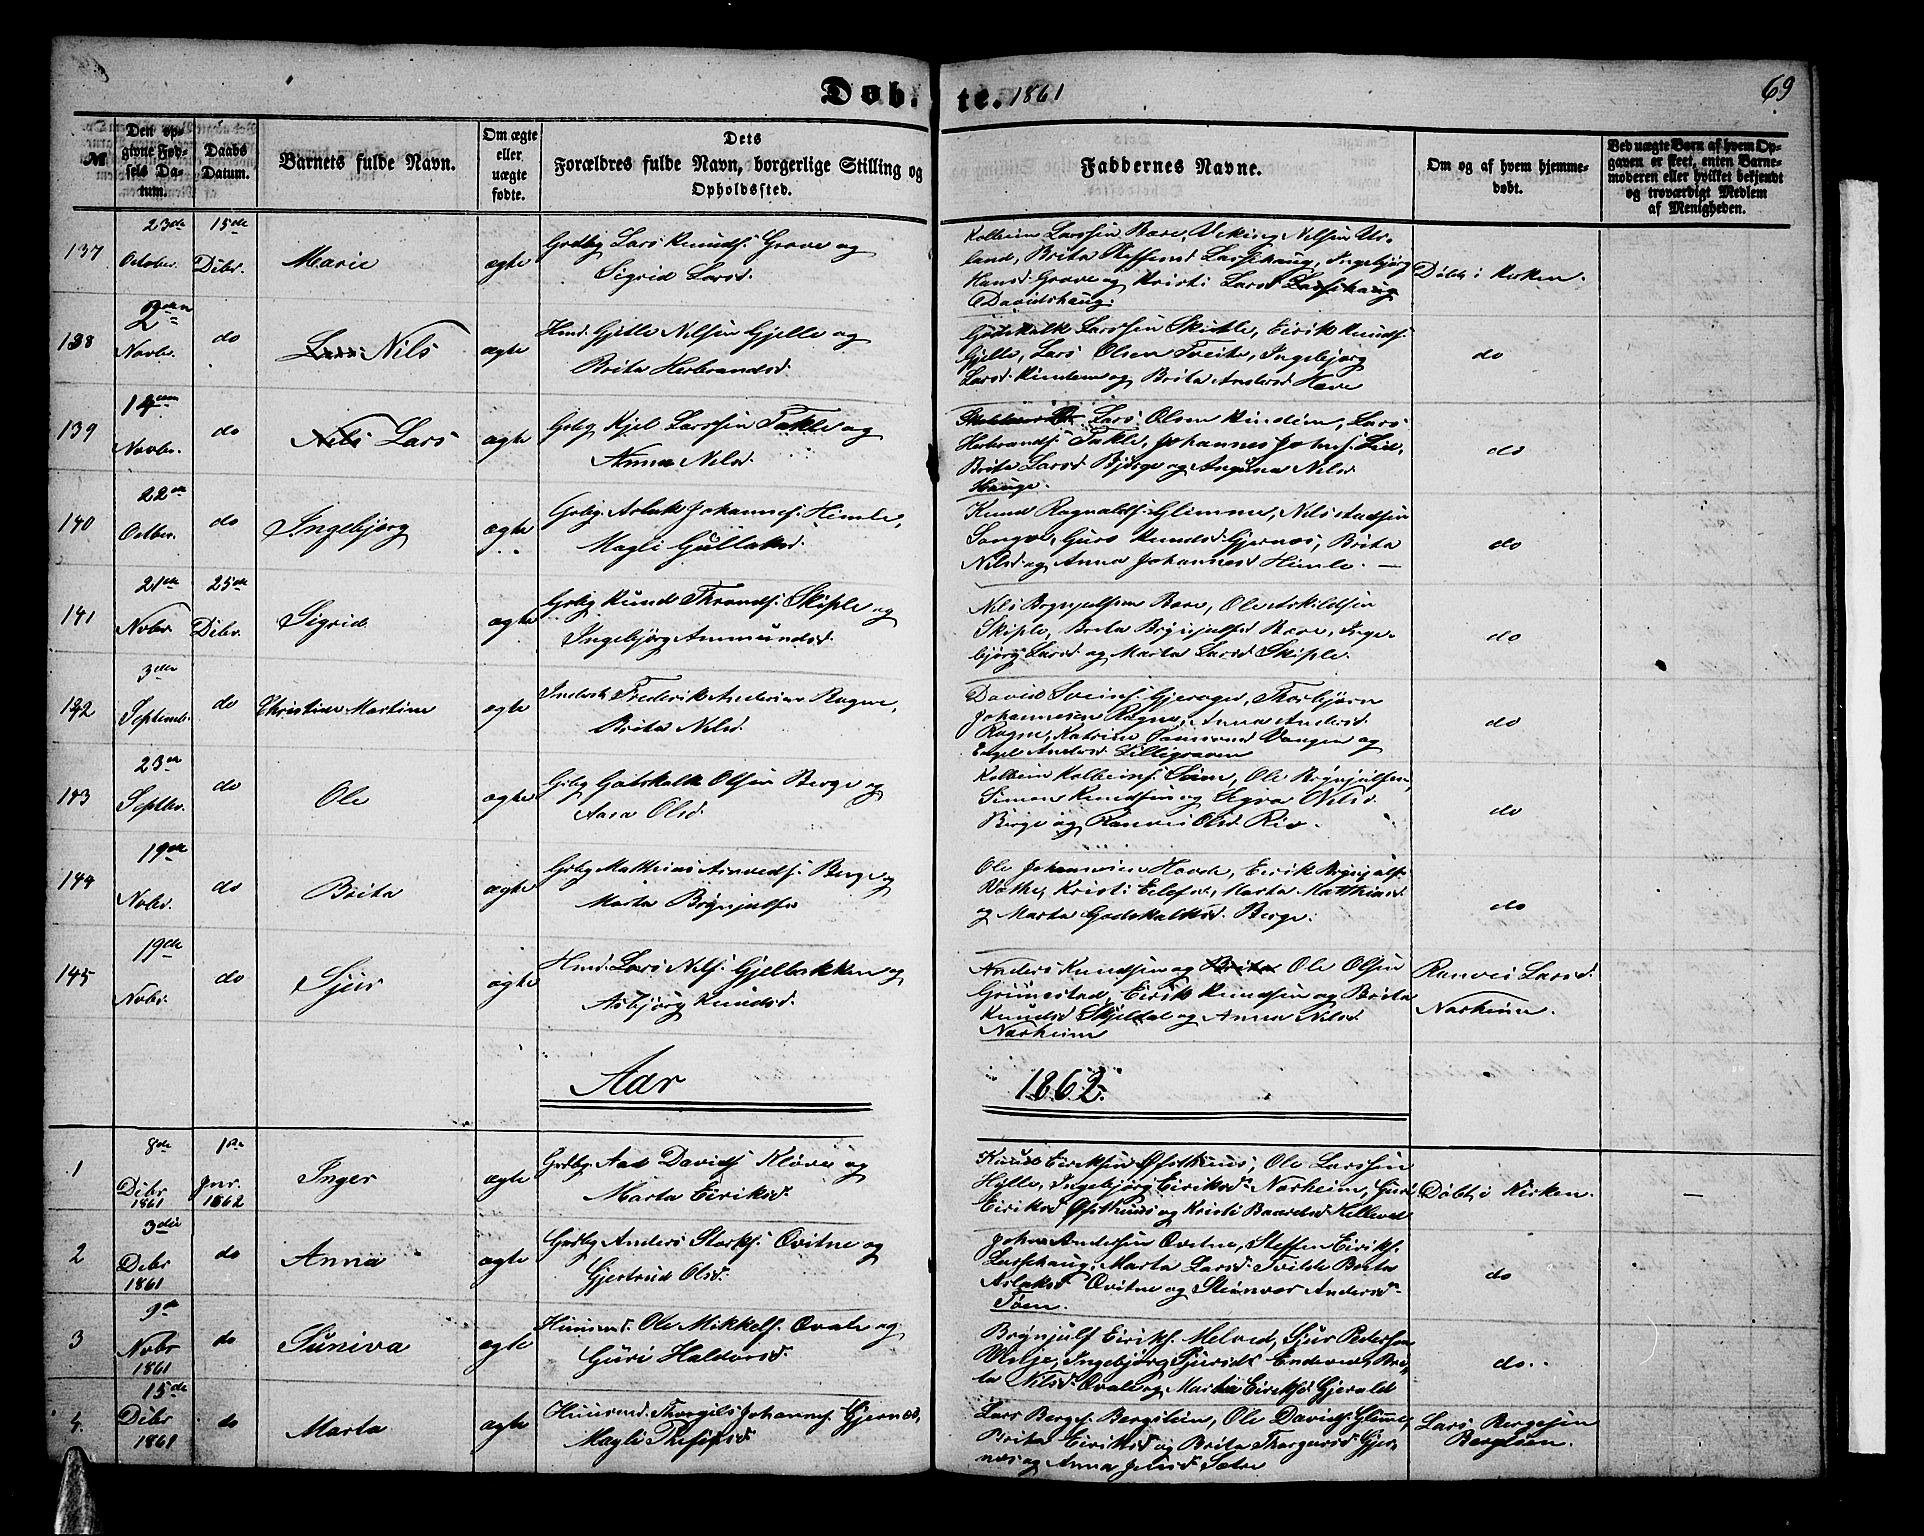 Døb- te. 1861
69
№
Den op-
givne Fød-
sels Da-
tum.
Daabs
Datum.
Barnets fulde Navn.
Om ægte
eller
uægte
fødte.
Dets
Forældres fulde Navn, borgerlige Stilling og
Opholdssted.
Faddernes Navne.
Om og af hvem hjemme-
døbt.
Ved uægte Børn af hvem Op-
gaven er skeet, enten Barne-
moderen eller hvilket bekjendt
og troværdigt Medlem
af Menigheden.
137
23de
October.
15de
Dcbr.
Marie
ægte
Grdbg Lars Knuds. Grove og
Sigrid Larsd.
Kolbein Larssen Børe, Viking Nilsen Ur-
land, Brita Steffensd Lassehaug, Ingebjørg
Hansd. Grove og Kristi Larsd Lassehaug
Davidshaug.
Døbt i Kirken.
138
2den
Novbr.
do
Lars Nils
ægte
Hmd. Gjelle Nilsen Gjelle og
Brita Herbrandsd.
Godskalk Larssen Skiple, Eirik Knuds.
Gjelle, Lars Olsen Tveite, Ingebjørg
Larsd. Rindem og Brita Andersd Hæve
do
139
14en
Novbr.
do
Nils Lars
ægte
Gbg Kjel Larssen Takle og
Anna Nilsd.
Lars Olsen Rindem, Lars
Herbrands. Takle, Johannes Johns. Lid,
Brita Larsd Bjørge og Anna Nilsd
Hauge.
do
140
22de
Octbr.
do
Ingebjørg
ægte
Gbg. Aslak Johannes. Himle,
Magli Gullaksd.
Knud Ragnalds. Glimme, Nils
Guro Knudsd. Gjernæs, Brita
Nilsd og Anna Johannesd Himle. —
do
141
21de
Novbr
25de
Dcbr.
Sigrid
ægte
Gbg Knud Thronds. Skiple og
Ingebjørg Ammundsd.
Nils Brynjulfsen Børe, Ole Askildsen
Skiple, Brita Brynjulfsd Børe, Inge-
bjørg Larsd og Marta Larsd Skiple.
do
142
3die
Septembr.
do
Christine Martine
ægte
Inderst Frederik Andersen Rogne,
Brita Nilsd
David Sveins. Gjerager, Thorbjørn
Johannesen Rogne, Anna Andersd.
Rogne, Katrine Vangen og
Engel Andersd. Lillegraven
do
143
23de
Septbr.
do
Ole
ægte
Gbg Gotskalk Olsen Berge og
Aasa Olsd.
Kolbein Kolbeins. Sæve, Ole Brynjulfsen,
Simon Knudsen og Nilsd.
Berge og Ranvei Olsd. Rio.
do
144
19de
Novbr.
do
Brita
ægte
Gbg Mathias Berge og
Marta Brynjulfsd
Ole Johannesen Eirik Brynjulfs.
Kristi Eilefsd, Marta Matthiasd
og Marta Godskalksd. Berge.
do
145
19de
Novbr.
do
Sjur
ægte
Hmd. Lars Nils. Gjelbakken og
Asbjørg Knudsd.
Anders Knudsen og Brita Ole Olsen
Grimestad, Eirik Knudsen og Brita
Knudsd Skjeldal og Anna Nilsd
Norheim
Ranvei Larsd.
Norheim.
Aar
1862.
1
8de
Dcbr
1861
1ste
Jnr.
1862
Inger
ægte
Grdbg Aad Davids Kløve og
Marta Eiriksd.
Knud Eiriksen Øfsthuus, Ole Larssen
Hylle, Ingebjørg Eiriksd Norheim, Guri
Eiriksd Øfsthuus og Kristi Baardsd Hellevd
Døbt i Kirken.
—
2
3die
Dcbr
1861
do
Anna
ægte
Grdbg Anders Storks. Qvitne og
Gjertrud Olsd.
Johan Andersen Qvitne, Steffen Eiriks.
Lassehaug, Marta Larsd. Tvilde Brita
Aslaksd Qvitne og Steinvor Andersd-
Tøen.
do
3
9de
Novbr
1861
do
Suniva
ægte
Huusmd. Ole Mikkels. Qvale og
Guri Haldorsd.
Brynjulf Eiriks. Melved, Sjur Pedersen
Vilje, Ingebjørg Sjursd Endeve, Bri-
ta Nilsd. Qvale og Marta Eiriksd Gjerald
do.
4.
15de
Dcbr
1861
do
Marta
ægte
Huusmd. Thorgils Johannes. Gjernæs,
Magli
Lars Berges. Bergslien, Ole Davids. Glimme,
Brita Eiriksd og Brita Thorgersd Gjer-
næs og Anna Jensd Sætre
Lars Bergesen
Bergslien.